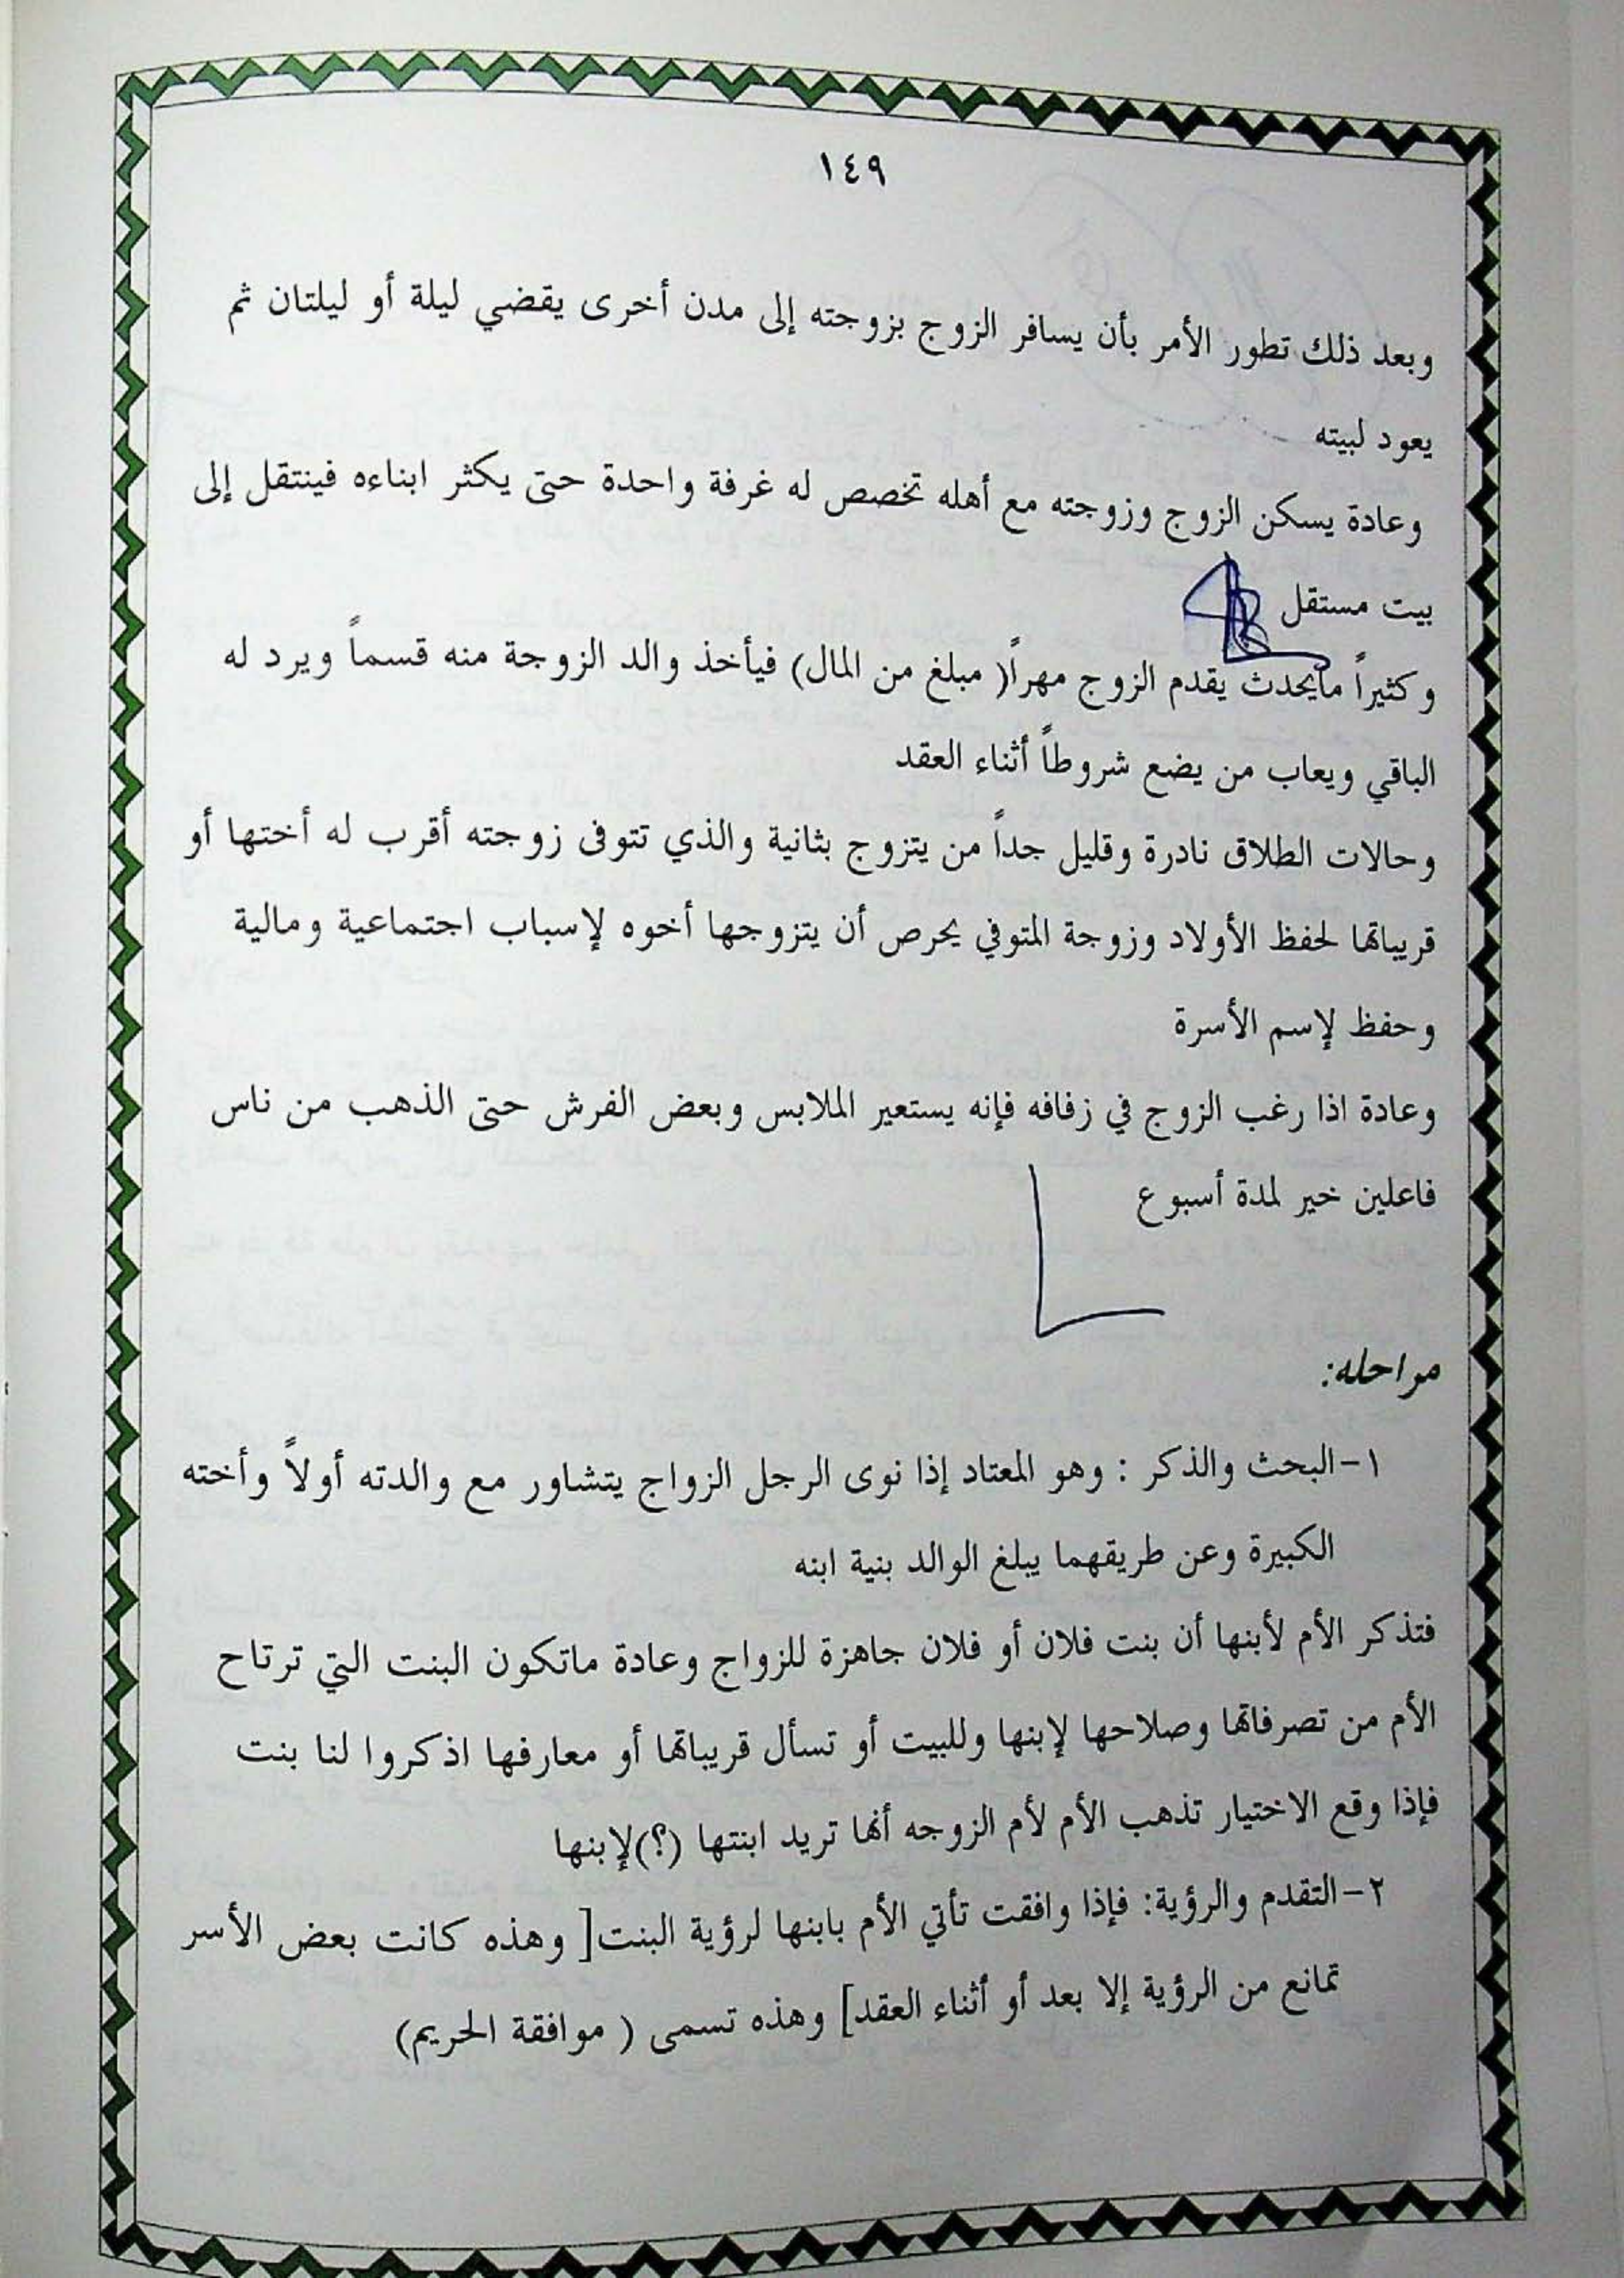 ١٤٩
وبعد ذلك تطور الأمر بأن يسافر الزوج بزوجته إلى مدن أخرى يقضي ليلة أو ليلتان ثم
يعود لبيته
وعادة يسكن الزوج وزوجته مع أهله تخصص له غرفة واحدة حتى يكثر ابناءه فينتقل إلى
بيت مستقل
وكثيراً مايحدث يقدم الزوج مهراً( مبلغ من المال) فيأخذ والد الزوجة منه قسماً ويرد له
الباقي ويعاب من يضع شروطاً أثناء العقد
وحالات الطلاق نادرة وقليل جداً من يتزوج بثانية والذي تتوفى زوجته أقرب له أختها أو
قريباتها لحفظ الأولاد وزوجة المتوفي يحرص أن يتزوجها أخوه لإسباب اجتماعية ومالية
وحفظ لإسم الأسرة
وعادة اذا رغب الزوج في زفافه فإنه يستعير الملابس وبعض الفرش حتى الذهب من ناس
فاعلين خير لمدة أسبوع
مراحله:
١-البحث والذكر : وهو المعتاد إذا نوى الرجل الزواج يتشاور مع والدته أولاً وأخته
الكبيرة وعن طريقهما يبلغ الوالد بنية ابنه
فتذكر الأم لأبنها أن بنت فلان أو فلان جاهزة للزواج وعادة ماتكون البنت التي ترتاح
الأم من تصرفاتها وصلاحها لإبنها وللبيت أو تسأل قريباتها أو معارفها اذكروا لنا بنت
فإذا وقع الاختيار تذهب الأم لأم الزوجه أنها تريد ابنتها (؟)لإبنها
٢-التقدم والرؤية: فإذا وافقت تأتي الأم بابنها لرؤية البنت[ وهذه كانت بعض الأسر
تمانع من الرؤية إلا بعد أو أثناء العقد] وهذه تسمى ( موافقة الحريم)